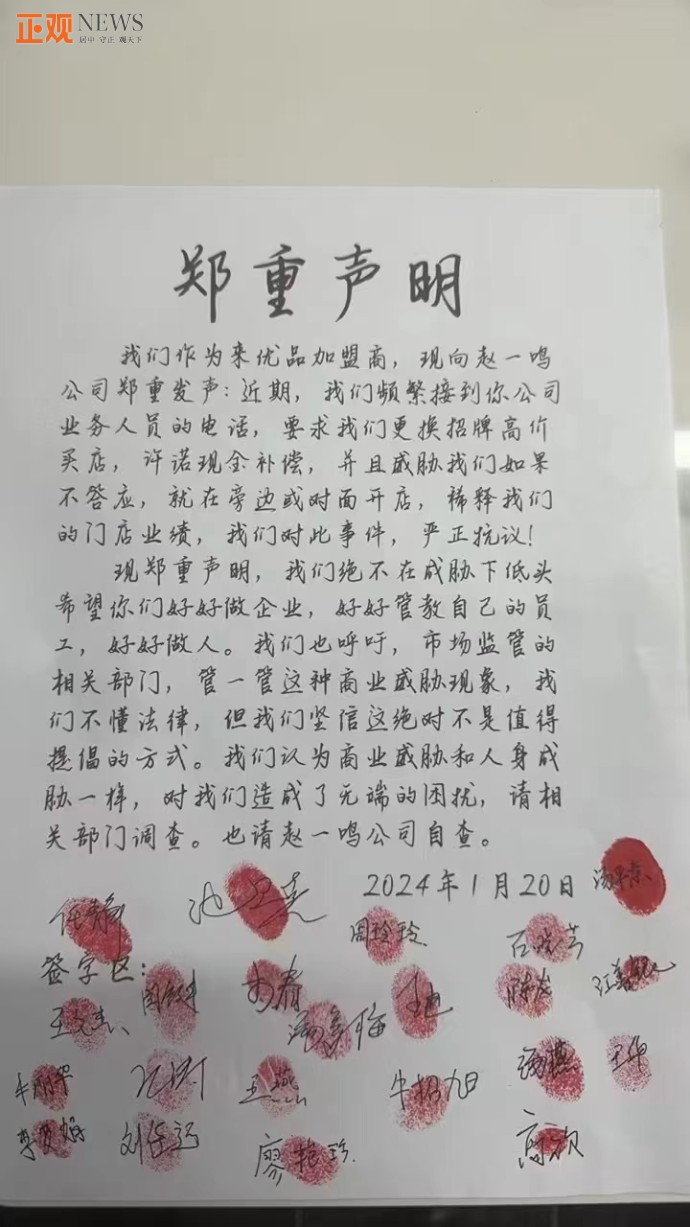 正观NEWS
居中 守正 观天下
郑重声明
我们作为来优品加盟商，现向赵一鸣
公司郑重发声：近期，我们频繁接到你公司
业务人员的电话，要求我们更换招牌高价
买店，许诺现金补偿，并且威胁我们如果
不答应，就在旁边或对面开店，稀释我们
的门店业绩，我们对此事件，严正抗议！
现郑重声明，我们绝不在威胁下低头
希望你们好好做企业，好好管教自己的员
工，好好做人。我们也呼吁，市场监管的
相关部门，管一管这种商业威胁现象，我
们不懂法律，但我们坚信这绝对不是值得
提倡的方式。我们认为商业威胁和人身威
胁一样，对我们造成了无端的困扰，请相
关部门调查。也请赵一鸣公司自查。
2024年1月20日
任静
周玲玲
签字区：
王燕
王华
廖艳珍
高颂